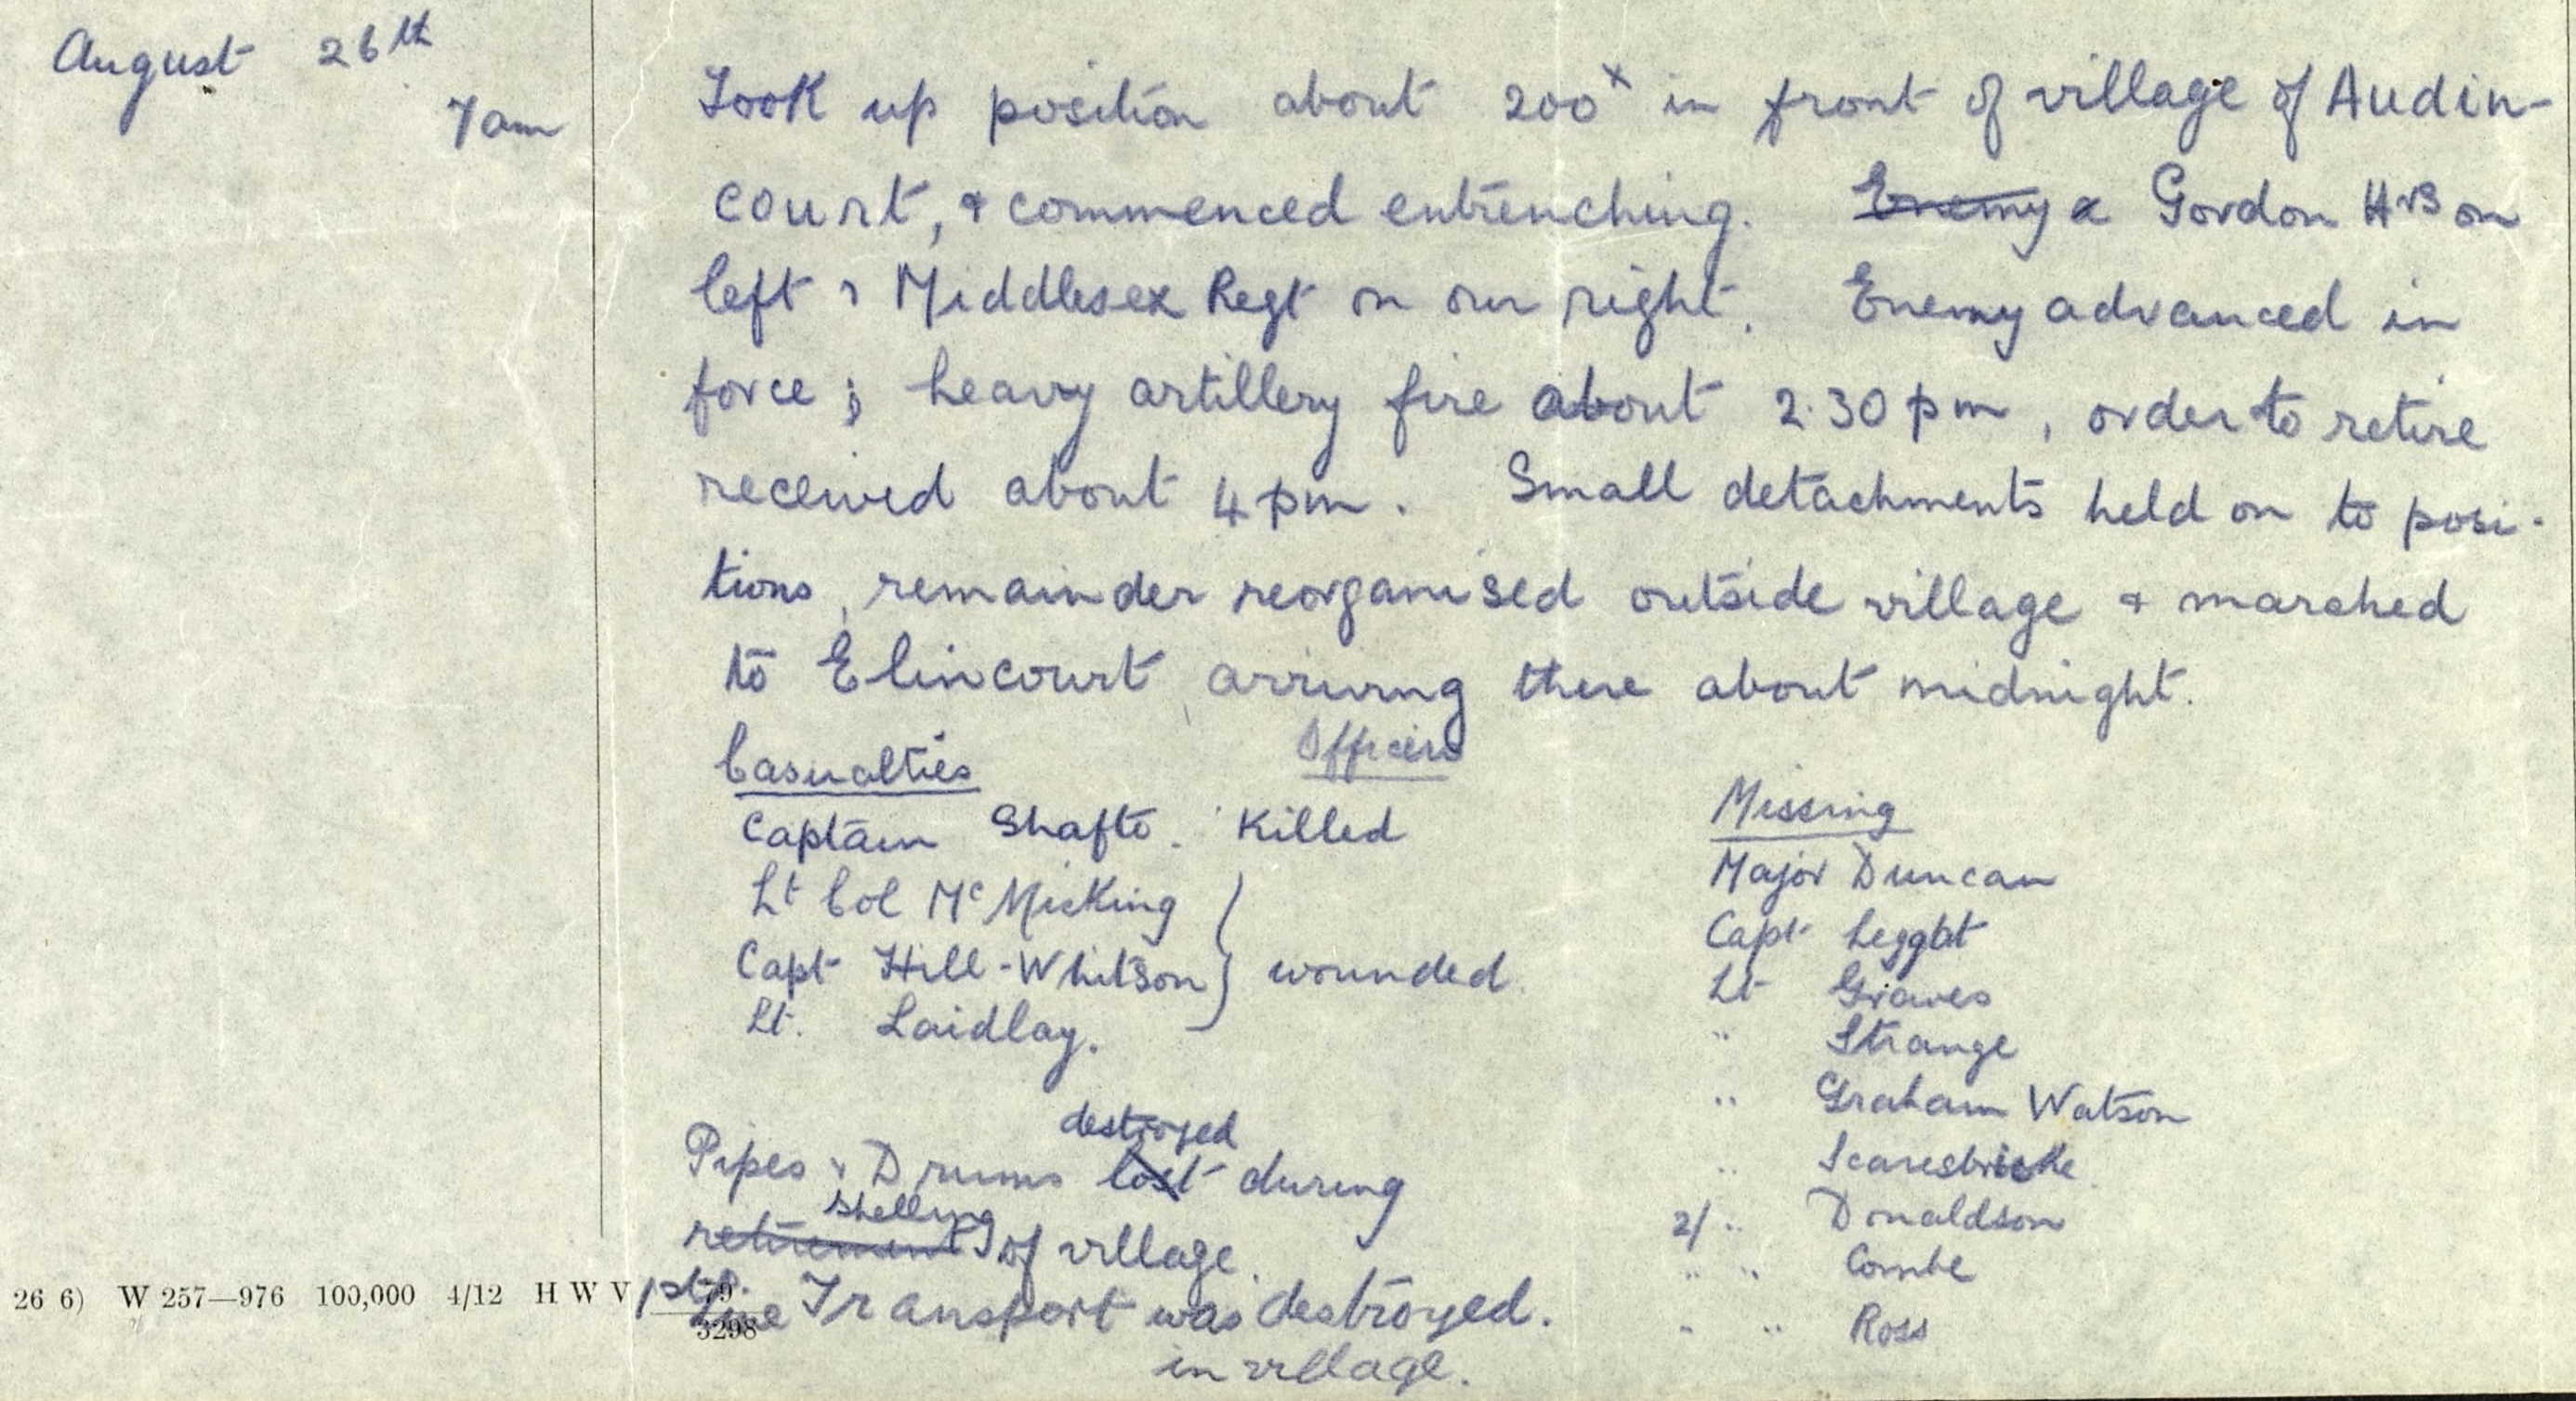 August 26th
7am
Took up position about 200x in front of village of Audin-
court, & commenced entrenching. Enemy & Gordon Hrs on
left & Middlesex Regt on our right. Enemy advanced in
force; heavy artillery fire about 2.30 pm, order to retire
received about 4 pm. Small detachments held on to posi-
tions, remainder reorganised outside village & marched
to Elincourt arriving there about midnight.
Casualties Officers
Captain Shafto. Killed
Lt Col McMicking
Capt Hill-Whitson } wounded.
Lt. Laidlay.
Missing
Major Duncan
Capt Leggat
Lt Graves
" Strange
" Graham Watson
" Scaresbricke
2/ " Donaldson
" " Combe
" " Ross
destroyed
Pipes & Drums lost during
shelling
retirement of village.
1st
Line Transport was destroyed.
in village.
26 6) W 257—976 100,000 4/12 H W V 79
3298